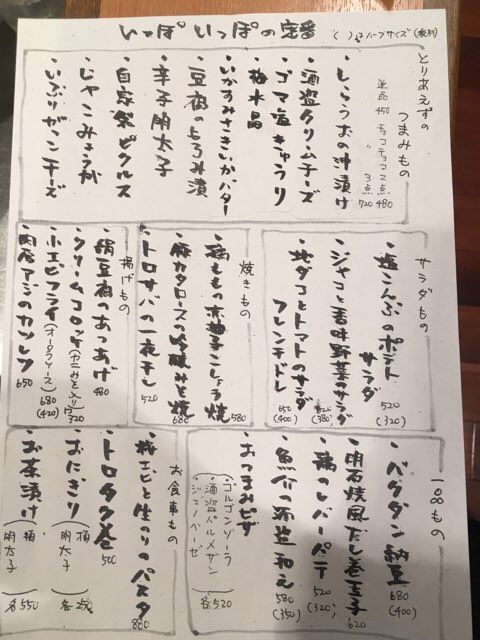 いっぽいっぽの定番
( )はハーフサイズ (税別)
とりあえずの
つまみもの
単品 450 チョコチョコ2点 480
〃 3点 720
・しらうおの汁漬け
・酒盗クリームチーズ
・ゴマ塩きゅうり
・梅水晶
・いかすみさきいかバター
・豆腐のとろみ漬
・辛子明太子
・自家製ピクルス
・じゃこみょうが
・いぶりガッコチーズ
サラダもの
・塩こんぶのポテトサラダ 520 (320)
・ジャコと香味野菜のサラダ 520 (380)
・地ダコとトマトのサラダ
フレンチドレ 650 (400)
焼きもの
・鶏ももの赤柚子こしょう焼 580
・豚カタロースの吟醸みそ焼 680
・トロサバの一夜干し 520
揚げもの
・絹豆腐のあつあげ 480
・クリームコロッケ(カニみそ入り) 520
・小エビフライ(オーロラソース) 680 (420)
・肉厚アジのカツレツ 650
一品もの
・バクダン納豆 680 (400)
・明石焼風だし巻玉子 620
・鶏のレバーパテ 520 (320)
・魚介の海苔和え 580 (350)
・おつまみピザ
・ゴルゴンゾーラ
・酒盗パルメザン
・ジェノベーゼ
各520
お食事もの
・桜エビと生のりのパスタ 880
・トロタク巻 500
・おにぎり (梅 明太子) 各250
・お茶漬け (梅 明太子) 各550